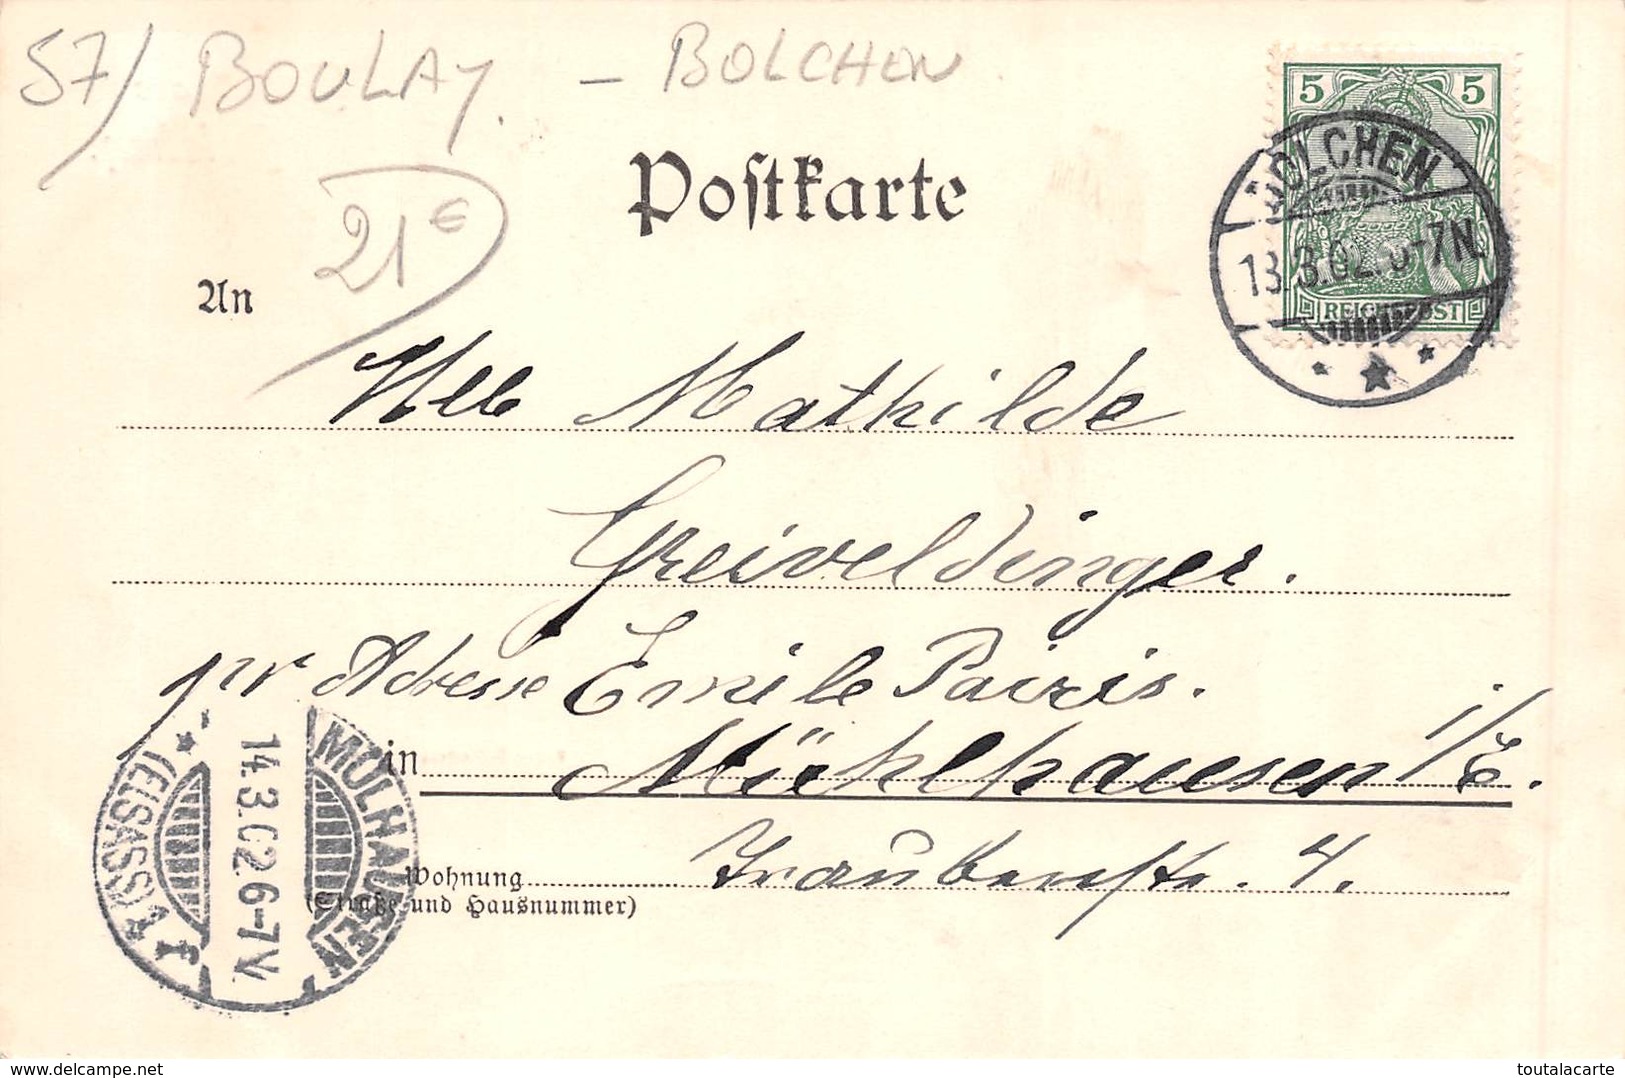 57/ BOULAY. - BOLCHEN
21€
Postkarte
5 5
REICHSPOST
BOLCHEN
13.3.02. 6-7N.
An
Mlle Mathilde
Greiveldinger.
pr Adresse Emile Pairis.
in Mühlhausen i/E.
Wohnung Traubenstr. 4.
(Straße und Hausnummer)
MÜLHAUSEN
14.3.02.6-7V.
(ELSASS) f
delcampe.net
toutalacarte